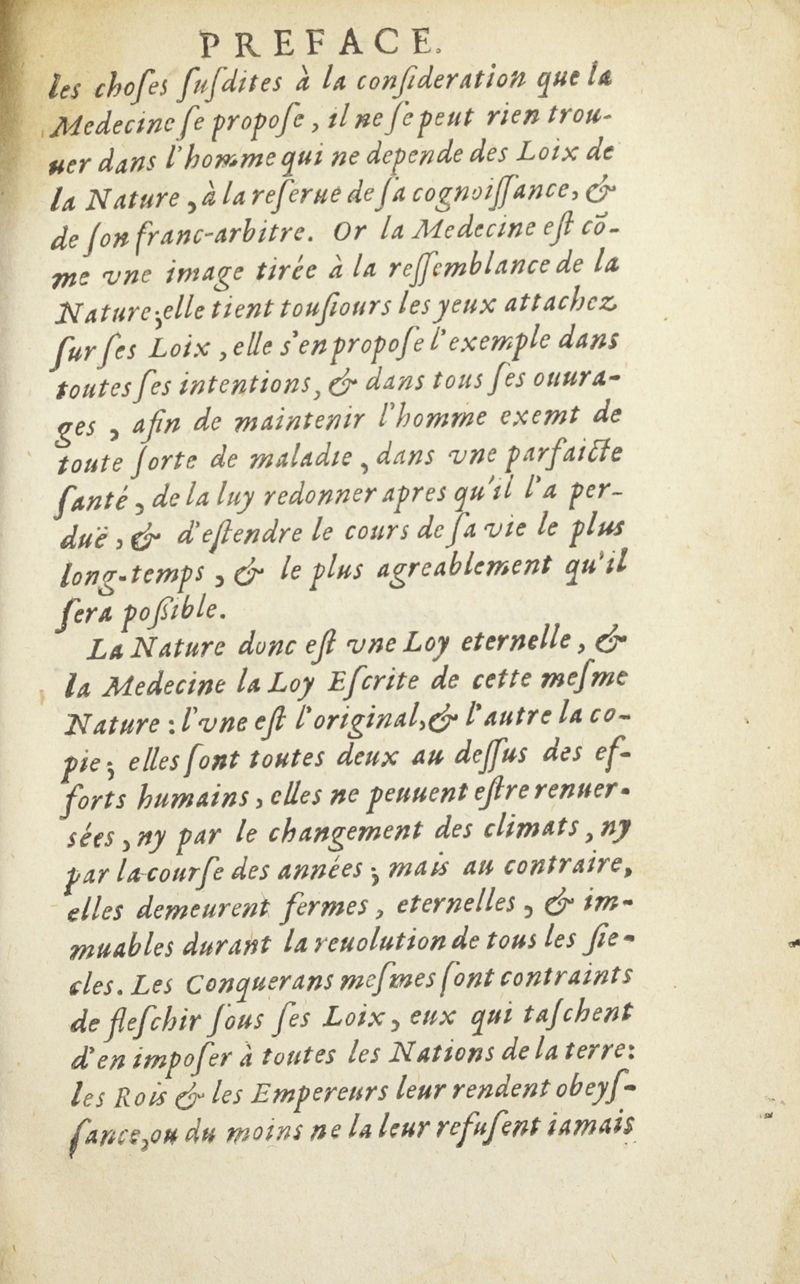 PREFACE.
les choſes ſuſdites à la conſideration que la
Medecine ſe propoſe, il ne ſe peut rien trou-
uer dans l'homme qui ne depende des Loix de
la Nature, à la reſerue de ſa cognoiſſance, &
de ſon franc-arbitre. Or la Medecine eſt cõ-
me vne image tirée à la reſſemblance de la
Nature; elle tient touſiours les yeux attachez
ſur ſes Loix, elle s'en propoſe l'exemple dans
toutes ſes intentions, & dans tous ſes ouura-
ges, afin de maintenir l'homme exemt de
toute ſorte de maladie, dans vne parfaicte
ſanté, de la luy redonner apres qu'il l'a per-
duë, & d'eſtendre le cours de ſa vie le plus
long-temps, & le plus agreablement qu'il
ſera poſſible.
La Nature donc eſt vne Loy eternelle, &
la Medecine la Loy Eſcrite de cette meſme
Nature : l'vne eſt l'original, & l'autre la co-
pie; elles ſont toutes deux au deſſus des ef-
forts humains, elles ne peuuent eſtre renuer-
sées, ny par le changement des climats, ny
par la courſe des années; mais au contraire,
elles demeurent fermes, eternelles, & im-
muables durant la reuolution de tous les ſie-
cles. Les Conquerans meſmes ſont contraints
de fleſchir ſous ſes Loix, eux qui taſchent
d'en impoſer à toutes les Nations de la terre:
les Rois & les Empereurs leur rendent obeyſ-
ſance, ou du moins ne la leur refuſent iamais